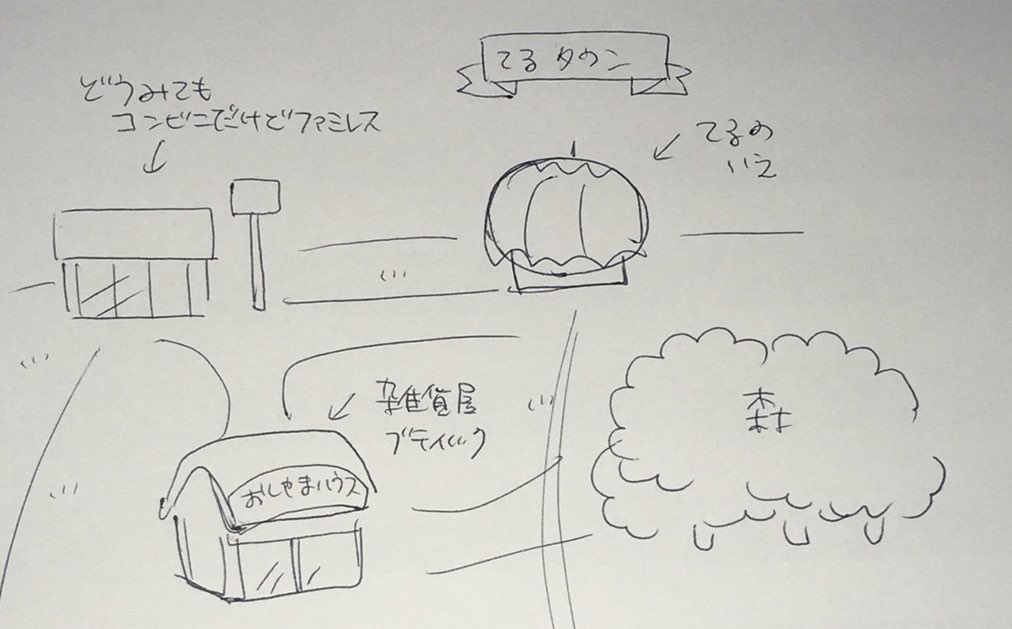 てるタウン
どうみても
コンビニだけどファミレス
てるの
いえ
雑貨屋
ブティック
おしゃまハウス
森